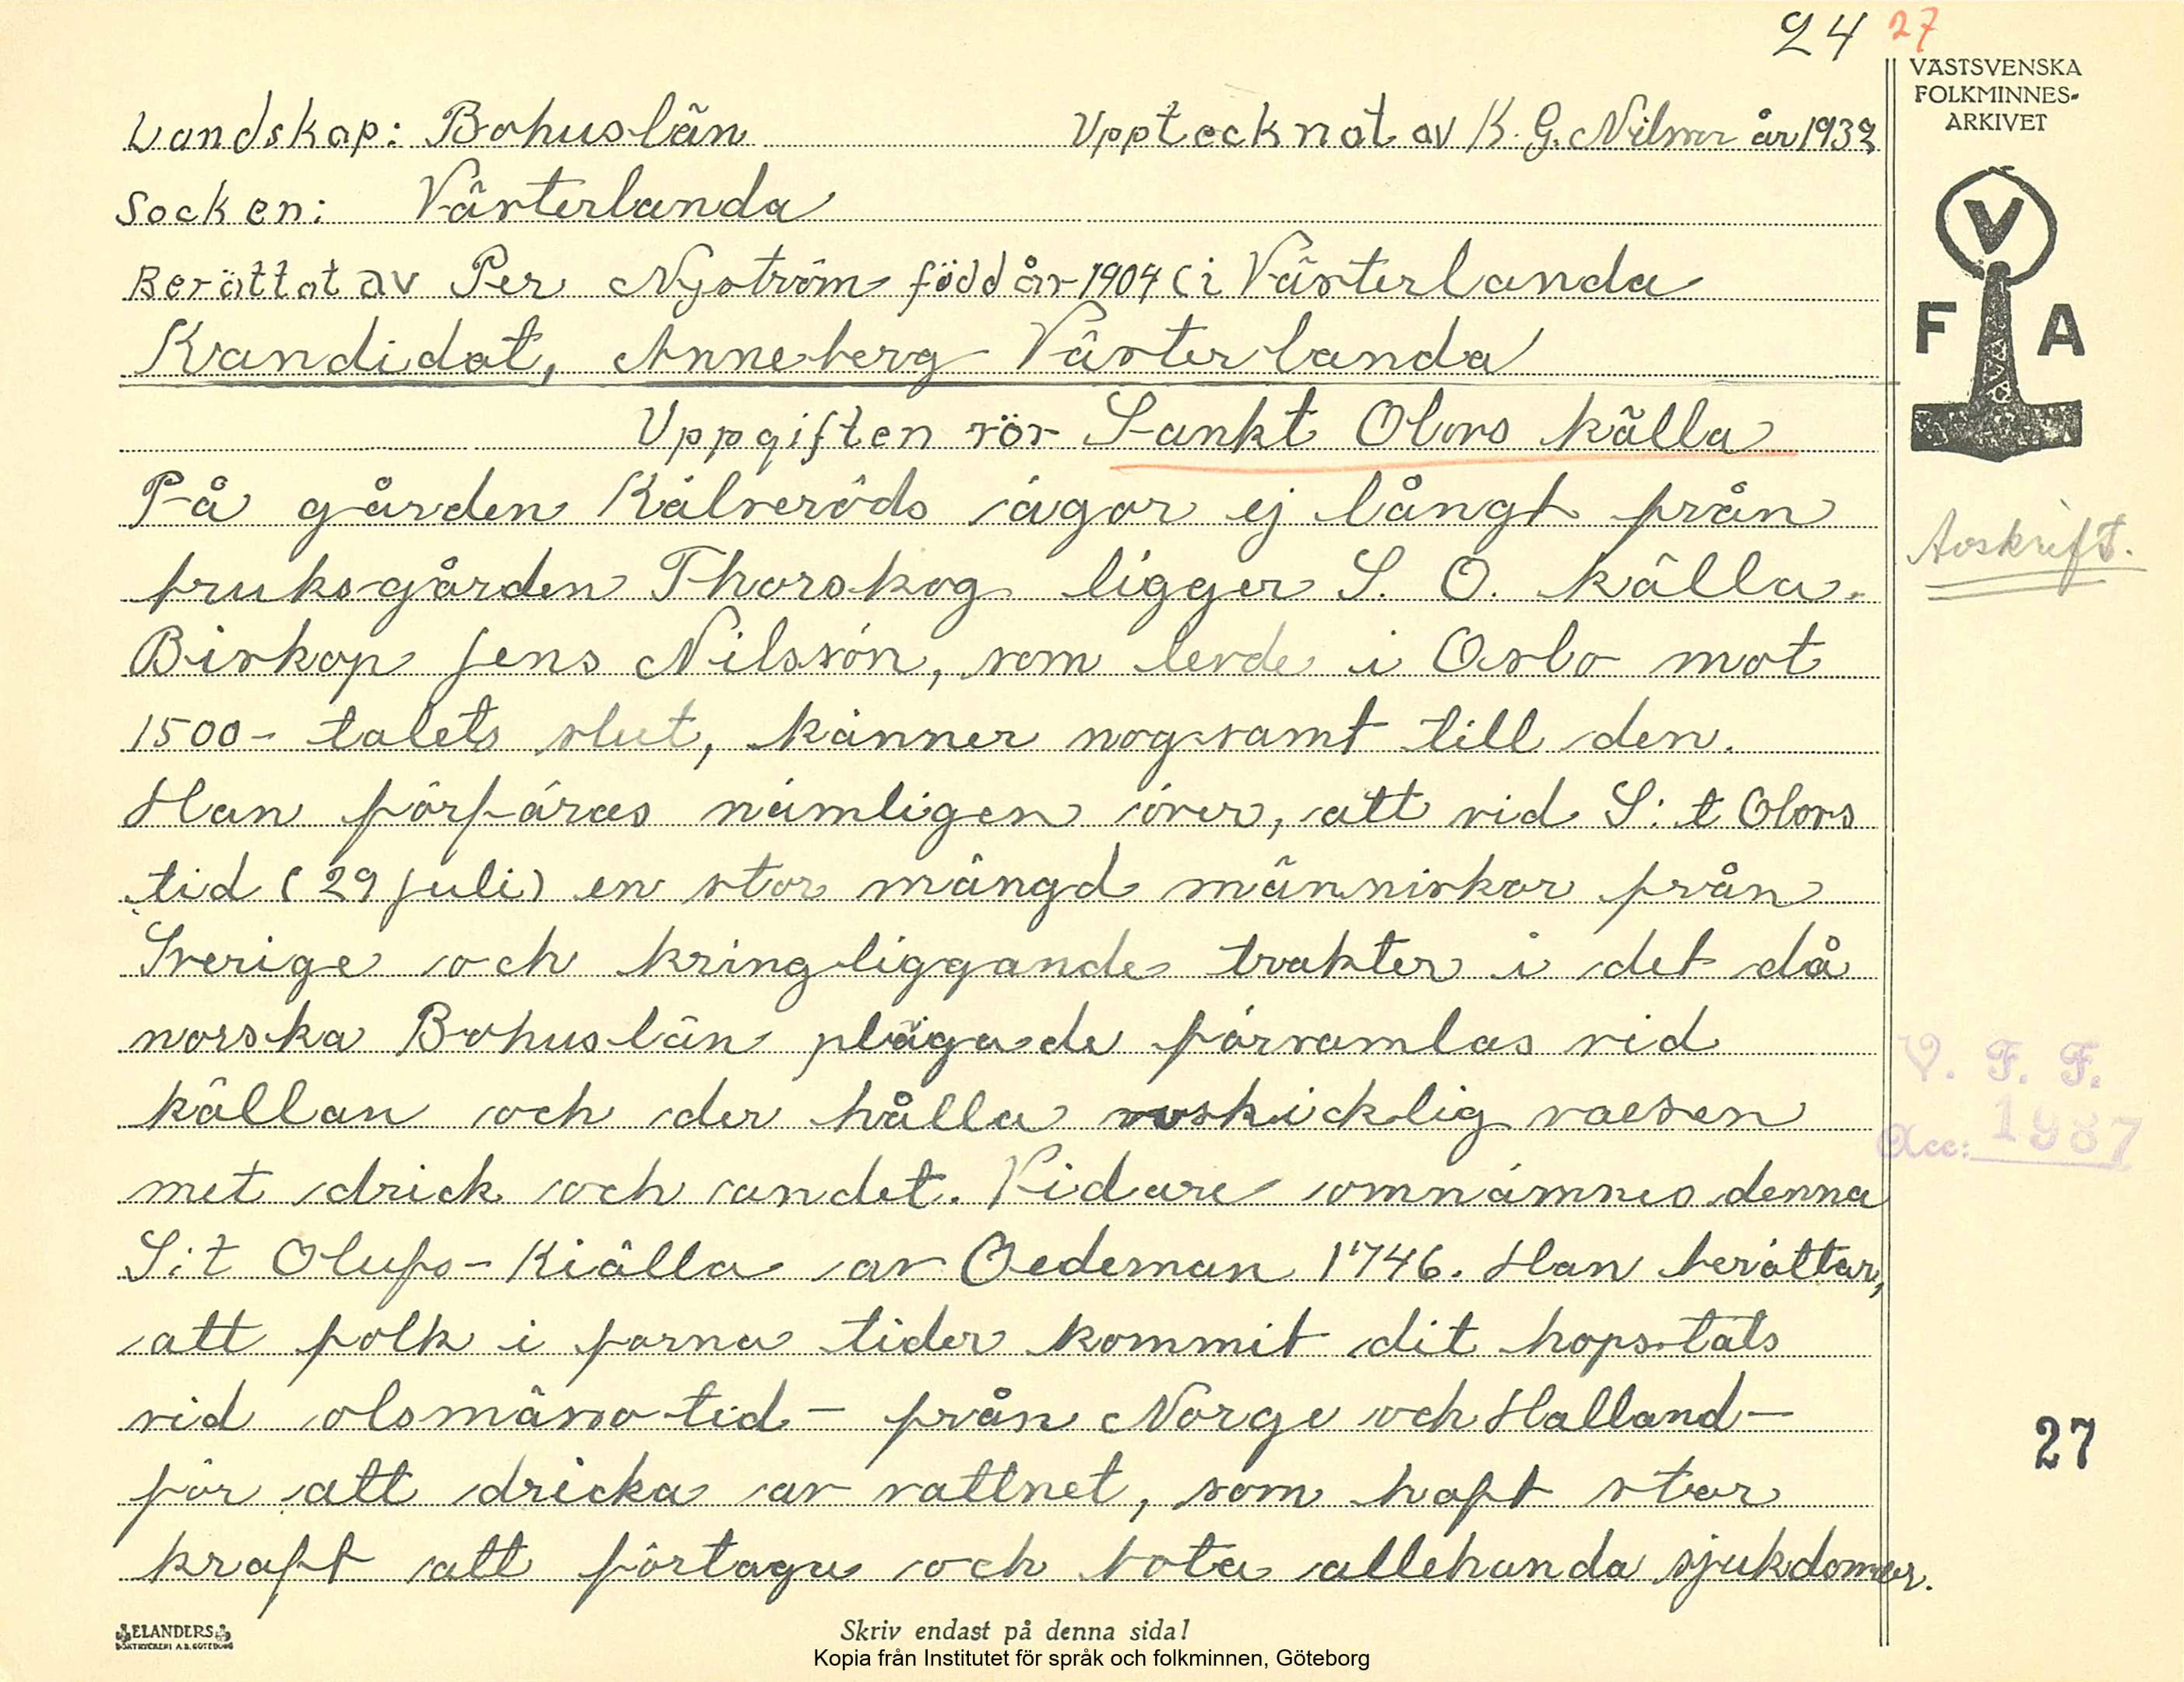 24 27
VÄSTSVENSKA
FOLKMINNES-
ARKIVET
Landskap: Bohuslän Upptecknat av K. G. Nilson år 1932
Socken: Västerlanda
Berättat av Per Nyström född år 1904 (i Västerlanda
Kandidat, Anneberg Västerlanda
V
F A
Uppgiften rör Sankt Olovs källa
På gården Kälveröds ägor ej långt från
Avskrift.
bruksgården Thorskog ligger S. O. källa.
Biskop Jens Nilssön, som levde i Oslo mot
1500-talets slut, känner nogsamt till den.
Han förfäras nämligen över, att vid S:t Olovs
tid (29 juli) en stor mängd människor från
Sverige och kringliggande trakter i det då
norska Bohuslän plägade församlas vid
V. F. F.
källan och der hålla uskicklig vaesen
Acc: 1987
met drick och andet. Vidare omnämnes denna
S:t Olufs-Kiälla av Oedeman 1746. Han berättar,
att folk i forna tider kommit dit hopstals
vid olsmässotid - från Norge och Halland -
27
för att dricka av vattnet, som haft stor
kraft att förtaga och bota allehanda sjukdomar.
ELANDERS
BOKTRYCKERI A.B. GÖTEBORG
Skriv endast på denna sida!
Kopia från Institutet för språk och folkminnen, Göteborg